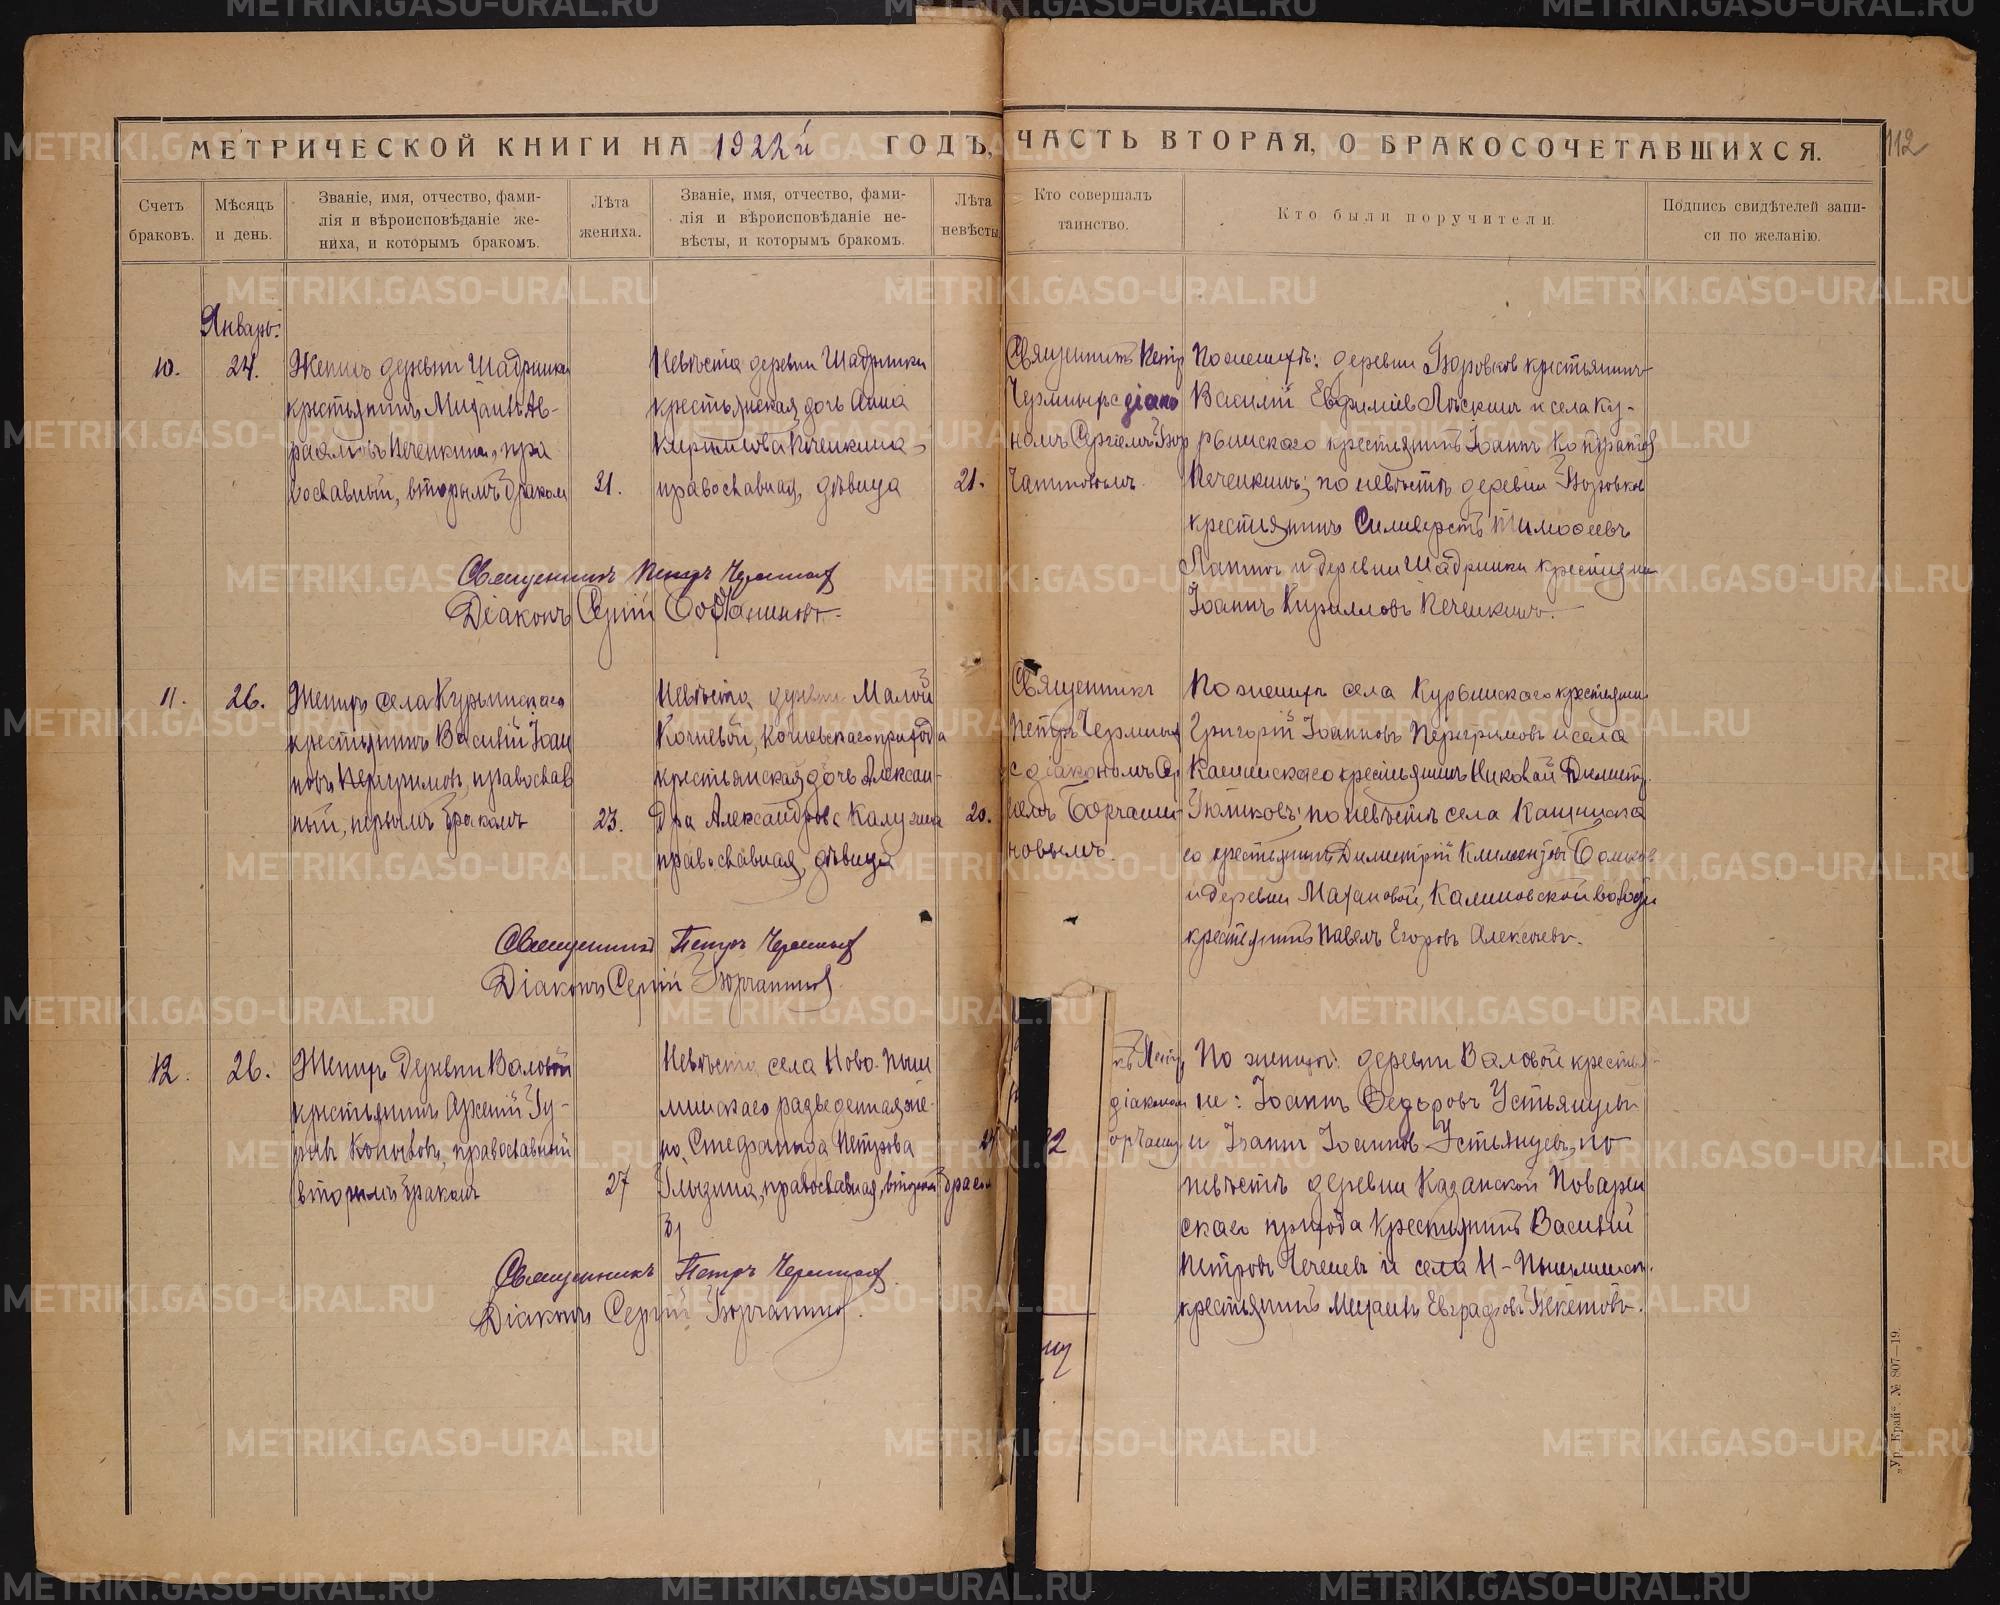 МЕТРИЧЕСКОЙ КНИГИ НА 1922й ГОДЪ, ЧАСТЬ ВТОРАЯ, О БРАКОСОЧЕТАВШИХСЯ.
112
Счетъ браковъ.
Мѣсяцъ и день.
Званіе, имя, отчество, фами-
лія и вѣроисповѣданіе же-
ниха, и которымъ бракомъ.
Лѣта жениха.
Званіе, имя, отчество, фами-
лія и вѣроисповѣданіе не-
вѣсты, и которымъ бракомъ.
Лѣта невѣсты.
Кто совершалъ
таинство.
Кто были поручители.
Подпись свидѣтелей запи-
си по желанію.
Январь.
10.
24.
Женихъ деревни Шадринки
крестьянинъ Михаилъ Ав-
раамовъ Печенкинъ, пра
вославный, вторымъ бракомъ
31.
Невѣста деревни Шадринки
крестьянская дочь Анна
Кириллова Печенкина,
православная, дѣвица
21.
Священникъ Петръ
діако
номъ Сергіемъ Бор
чаниновымъ.
По женихѣ: деревни Боровков крестьянинъ
Василій Евфиміев и села Ку-
рьинскаго крестьянинъ Іоаннъ Кондратов
Печенкинъ; по невѣстѣ деревни Боровков
крестьянинъ Силиверстъ Тимоѳеевъ
и деревни Шадринки крестьянин
Іоаннъ Кирилловъ Печенкинъ.
Священникъ Петръ
Діаконъ Сергій Борчаниновъ.
11.
26.
Женихъ села Курьинскаго
крестьянинъ Василій Іоан
новъ Перегримовъ, православ
ный, первымъ бракомъ
23.
Невѣста деревни Малой
Кочневой, Кочневскаго прихода
крестьянская дочь Алексан-
дра Александрова Калугина
православная, дѣвица
20.
Священникъ
Петръ
съ діакономъ Сер
гіемъ Борчани-
новымъ.
По женихѣ села Курьинскаго крестьянин
Григорій Іоанновъ Перегримовъ и села
крестьянинъ Николай Димитр.
по невѣстѣ села
го крестьянинъ Димитрій Климентовъ
и деревни Махановой, Калиновской волости
крестьянинъ Павелъ Егоровъ Алексѣевъ.
Священникъ Петръ
Діаконъ Сергій Борчаниновъ.
12.
26.
Женихъ деревни Валовой
крестьянинъ Гу-
рьевъ Копытовъ, православный
вторымъ бракомъ
27
Невѣста села Ново-Пыш
минскаго разведенная же-
на, Стефанида Петрова
православная, вторымъ бракомъ
къ Петр
діакономъ
орчани
По женихѣ: деревни Валовой крестья-
не: Іоаннъ Ѳедоровъ Устьянцевъ
и Іоаннъ Іоаннов Устьянцевъ, по
невѣстѣ деревни Казанской Поварен
скаго прихода крестьянинъ Василій
Петровъ и села Н-Пышминск.
крестьянинъ Михаилъ Евграфовъ Бекетовъ.
Священникъ Петръ
Діаконъ Сергій Борчаниновъ.
„Ур. Край“. № 807—19.
METRIKI.GASO-URAL.RU